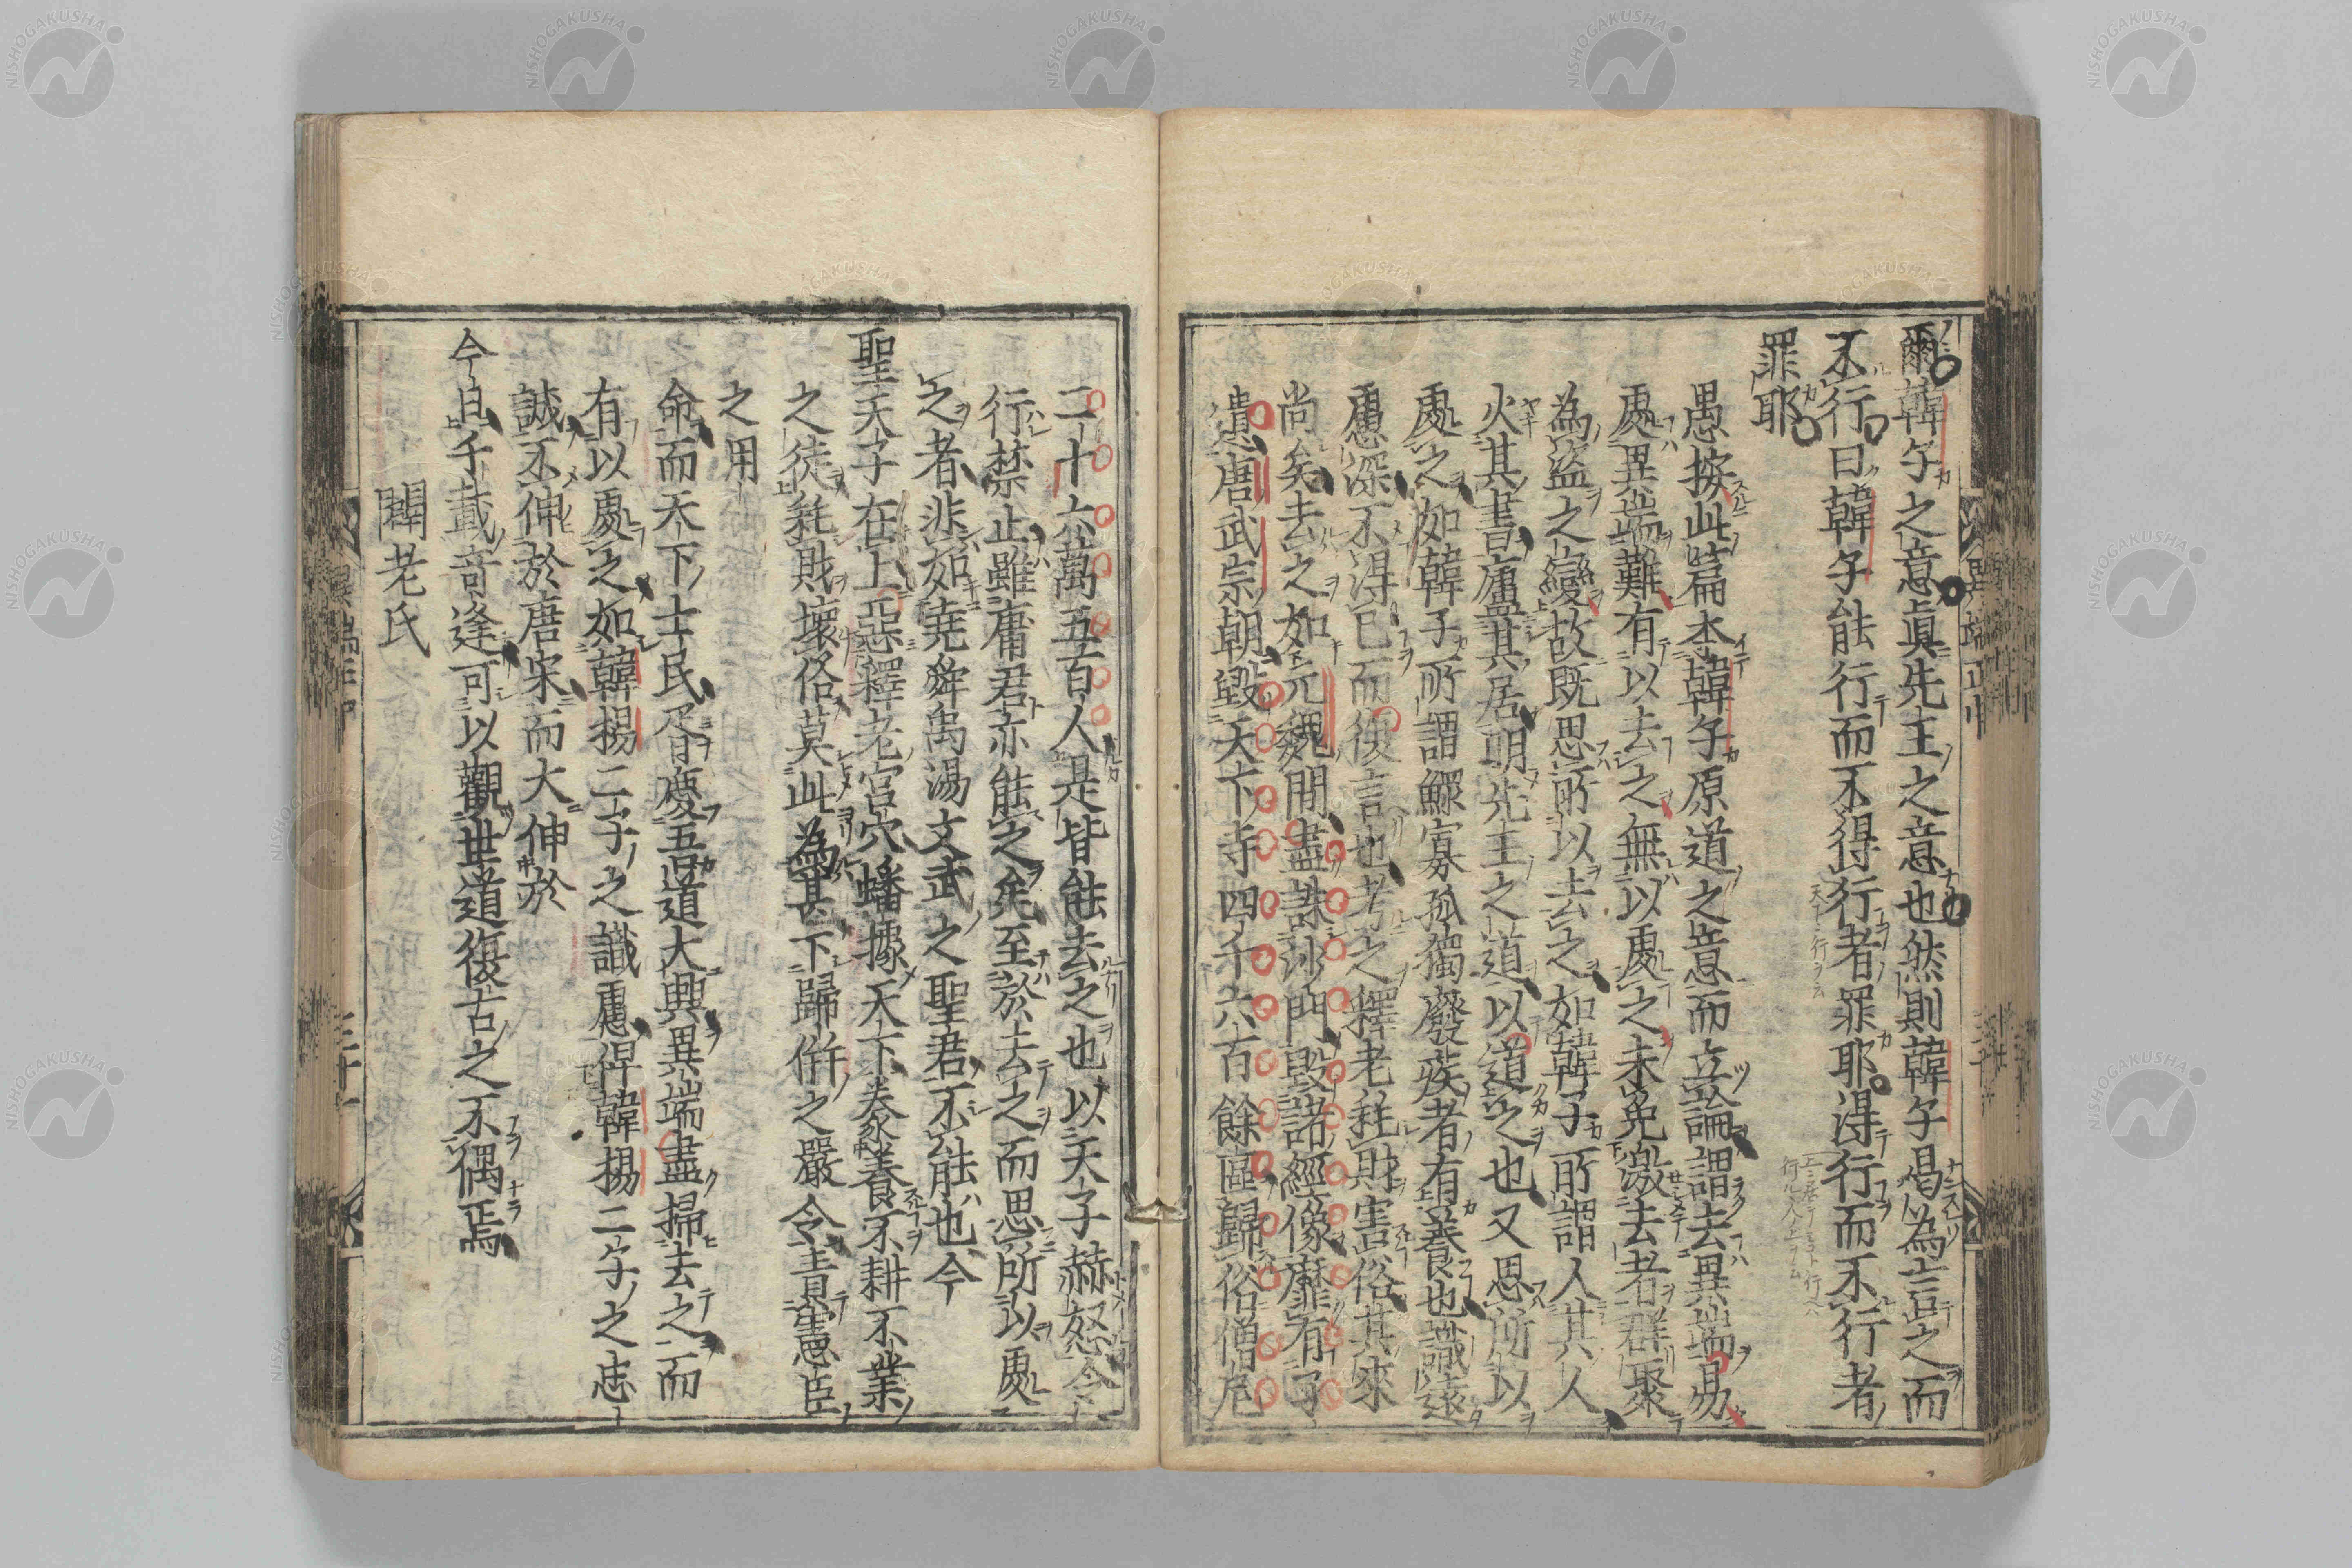 爾韓子之意眞先王之意也然則韓子曷以為言之而
不行曰韓子能行而不得行者罪耶得行而不行者
罪耶
愚按此篇本韓子原道之意而立論謂去異端易
處異端難有以去之無以處之未免激去者群聚
為盜之變故既思所以去之如韓子所謂人其人
火其書廬其居明先王之道以道之也又思所以
處之如韓子所謂鰥寡孤獨廢疾者有養也識遠
慮深不得已而復言也考之釋老耗財害俗其來
尚矣去之如元魏閒盡誅沙門毀諸經像靡有孑
遺唐武宗朝毀天下寺四千六百餘區歸俗僧尼
二十六萬五百人是皆能去之也以天子赫怒令
行禁止雖庸君亦能之矣至於去之而思所以處
之者非如堯舜禹湯文武之聖君不能也今
聖天子在上惡釋老宮穴蟠據天下豢養不耕不業
之徒耗財壞俗莫此為甚下歸併之嚴令責憲臣
之用
命而天下士民胥慶吾道大興異端盡掃去之而
有以處之如韓揚二子之識慮俾韓揚二子之志
誠不伸於唐宋而大伸於
今日千載奇逢可以觀世道復古之不偶焉
闢老氏
異端正中
三十
三十一
NISHOGAKUSHA